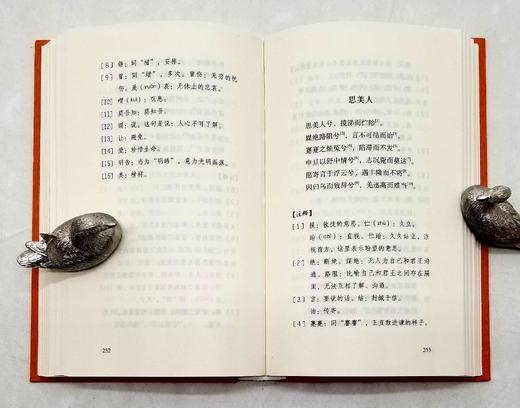 [8] 错：同“措”，安排。
[9] 曾：同“增”，多次。曾伤：无穷的忧
伤。爰（yuán）哀：无休止的悲哀。
[10] 喟（kuì）：叹息。
[11] 莫吾知：莫知吾。
[12] 谓：说。这句是说：人心不可了解。
[13] 让：避免。
[14] 爱：珍惜生命。
[15] 明告：当为“明皓”，意为光明磊落。
[16] 类：榜样。
252
思美人
思美人兮，揽涕而伫眙[1]。
媒绝路阻兮[2]，言不可结而诒[3]。
蹇蹇之烦冤兮[4]，陷滞而不发[5]。
申旦以舒中情兮[6]，志沉菀而莫达[7]。
愿寄言于浮云兮，遇丰隆而不将[8]。
因归鸟而致辞兮[9]，羌迅高而难当[10]。
【注释】
[1] 揽：收拢的意思。伫（zhù）：久立。
眙（chì）：直视。伫眙：久久站立，注
视前方。这里表示盼望的意思。
[2] 绝：断绝。媒绝：无人为自己和君王沟
通。路阻：比喻自己和君王之间存在隔
阂，无法互相了解、沟通。
[3] 言：要说的话。结：封缄于信。
诒：传寄。
[4] 蹇蹇：同“謇謇”，正直敢进谏的样子。
253